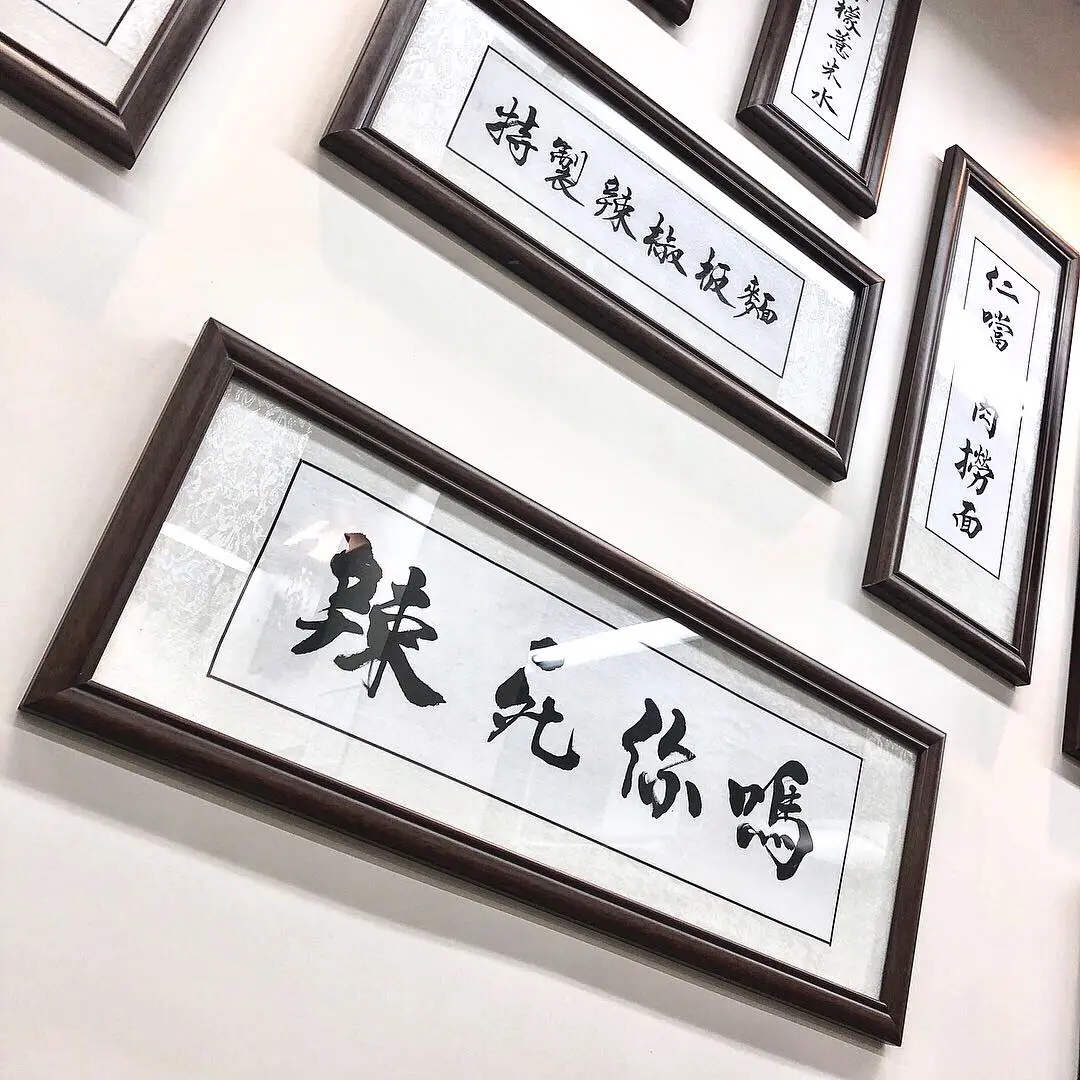 特製辣椒板麵
檬薏米水
仁噹 肉撈面
辣死你嗎